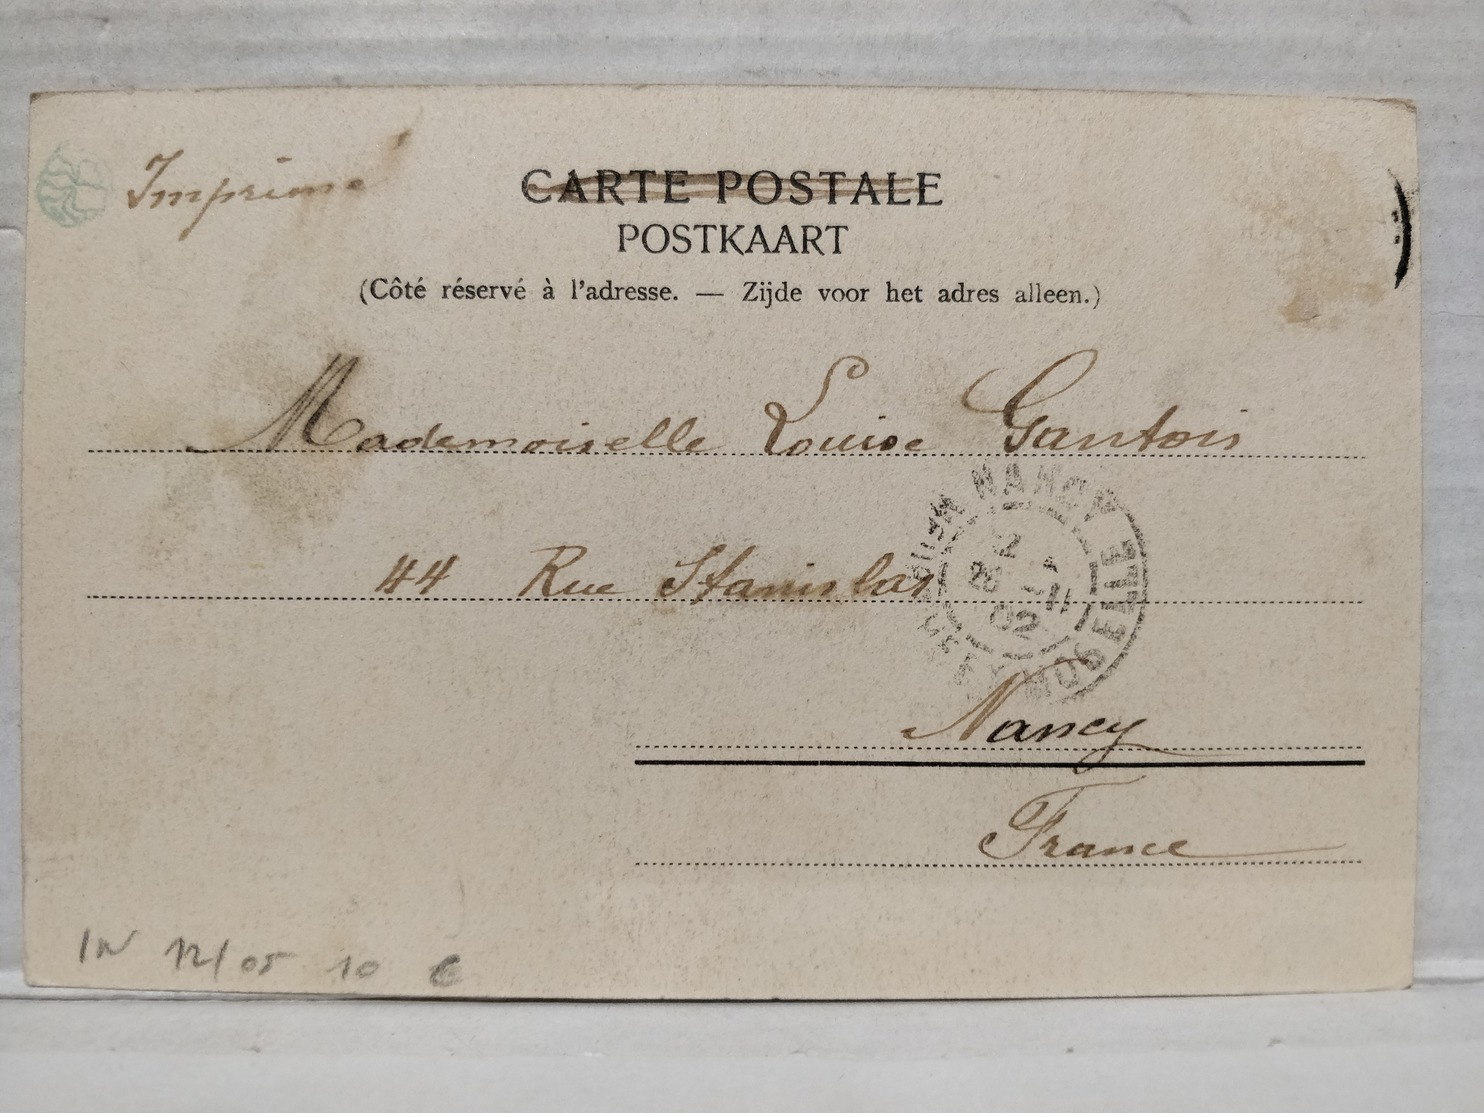 Imprimé
CARTE POSTALE
POSTKAART
(Côté réservé à l'adresse. — Zijde voor het adres alleen.)
Mademoiselle Louise Gantois
44 Rue Stanislas
NANCY
MOSELLE
02
Nancy
France
12/05 10 €